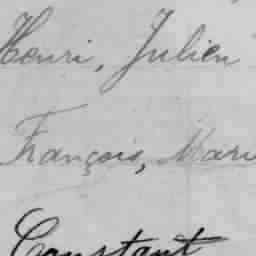 Henri, Julien
François, Mari
Constant